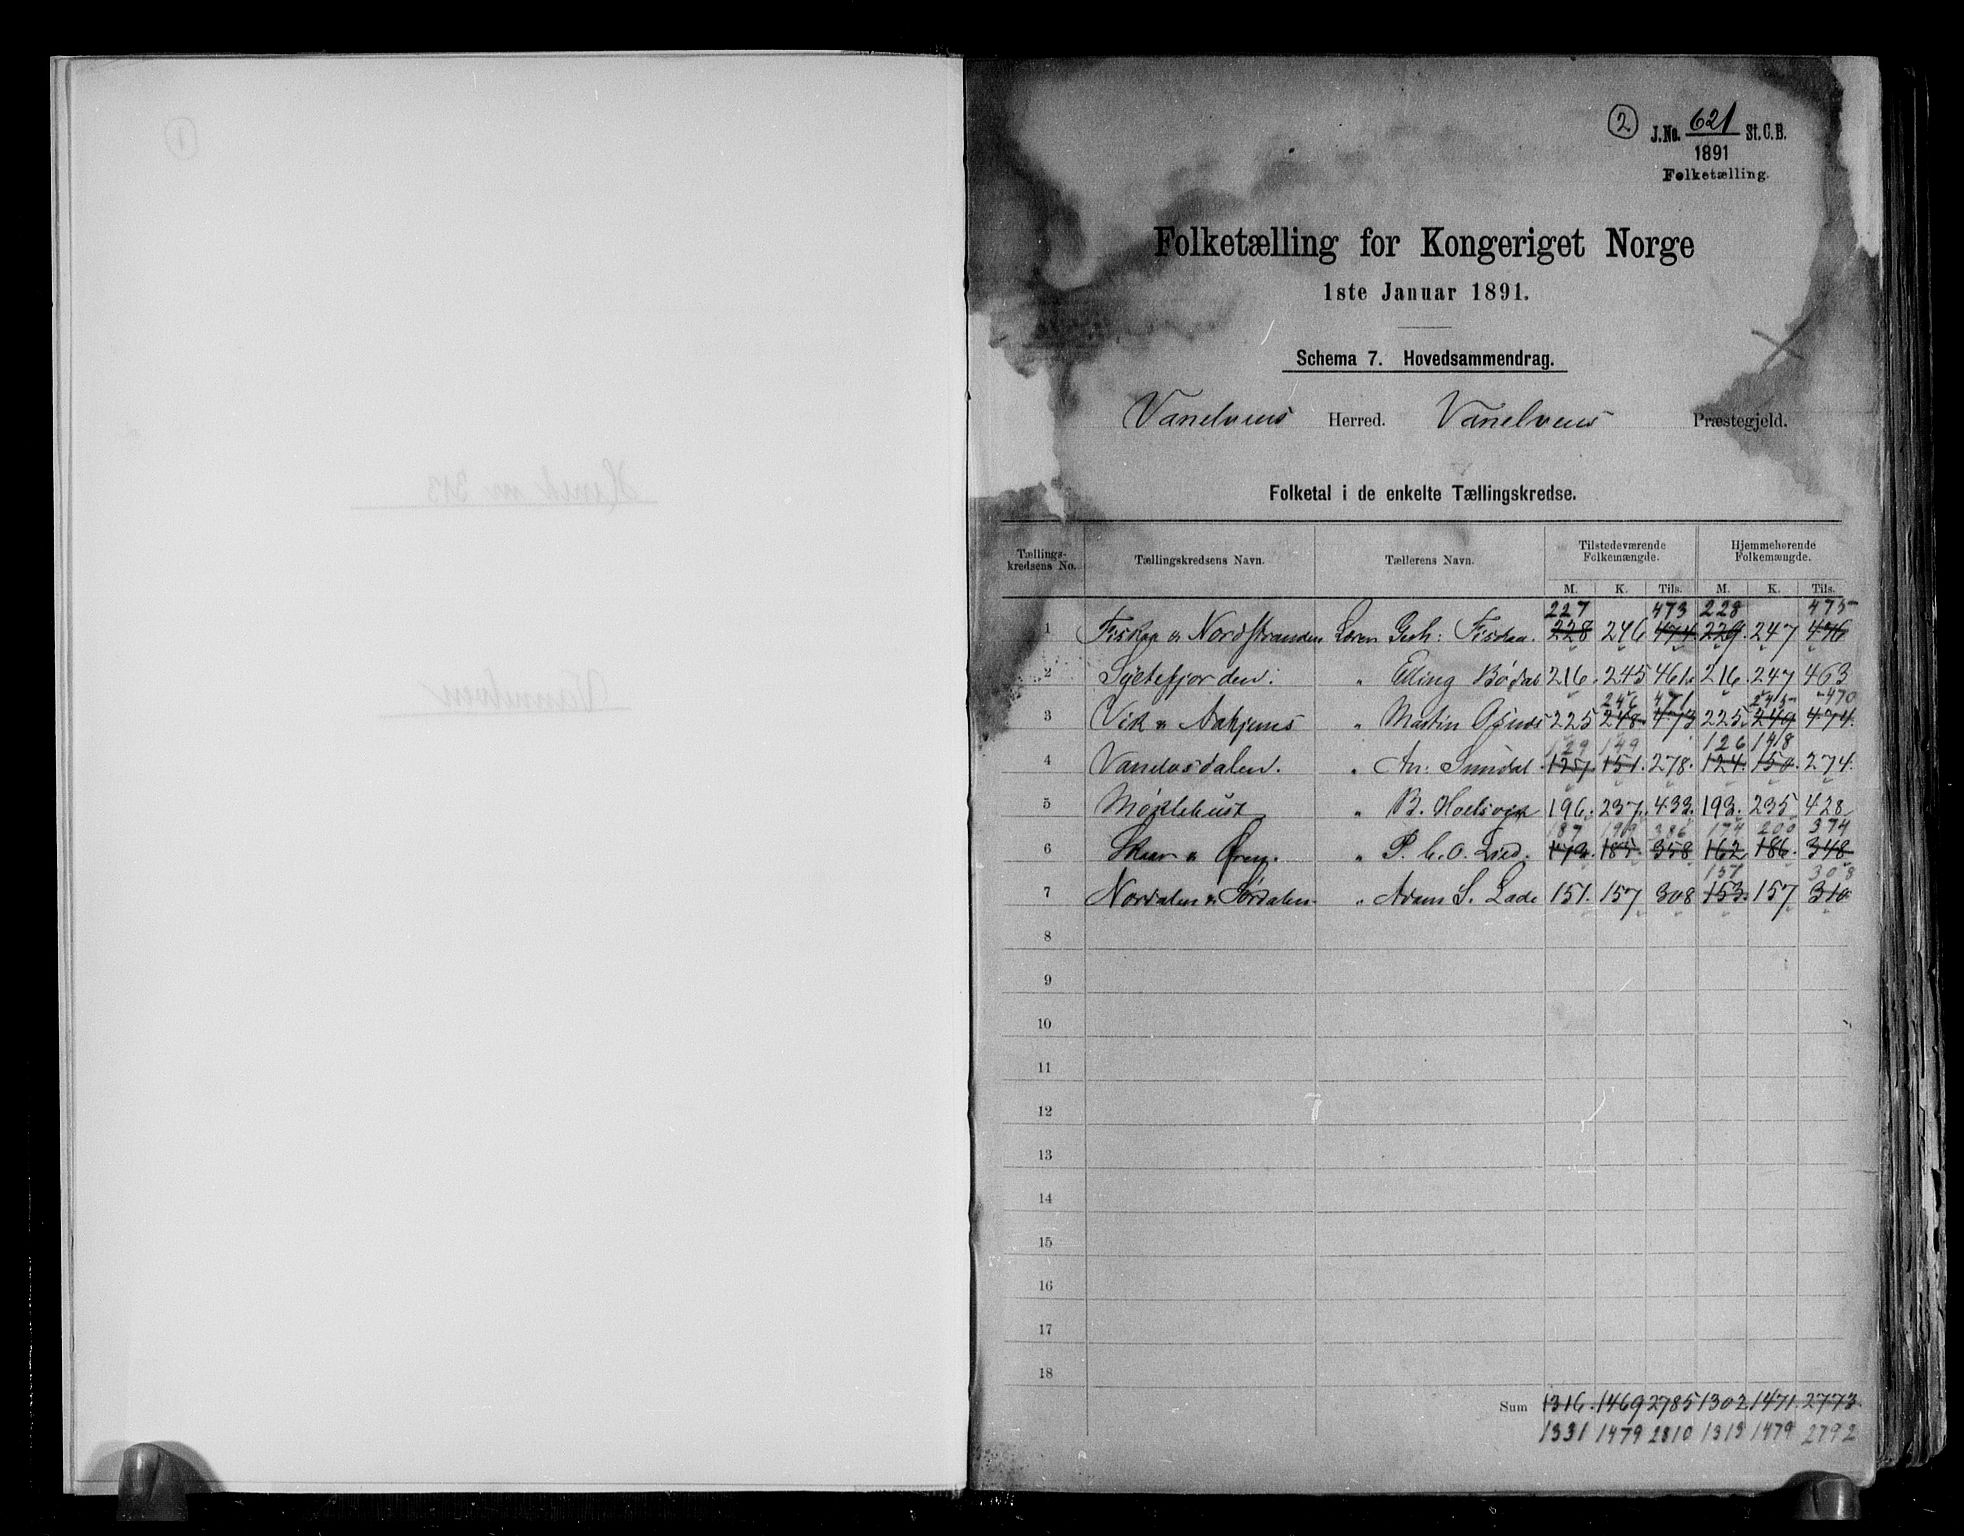 2
J.No. 621 St.C.B.
1891
Folketælling.
Folketælling for Kongeriget Norge
1ste Januar 1891.
Schema 7. Hovedsammendrag.
Vanelvens Herred. Vanelvens Præstegjeld.
Folketal i de enkelte Tællingskredse.
Tællings-kredsens No. Tællingskredsens Navn. Tællerens Navn. Tilstedeværende Folkemængde. Hjemmehørende Folkemængde.
M. K. Tils. M. K. Tils.
227 473 228 475
1 Fiskaa og Nordstranden Læren Gerh: Fiskaa. 228 246 474 229. 247 476
2 Syltefjorden. " Elling Bødal 216. 245 461. 216. 247 463
246 471 245 470
3 Vik " Aahjems " Martin 225 248. 473 225. 249 474.
129 149 126 148
4 Vanelvsdalen. " An: Sundal 127 151. 278. 124. 150. 274.
5 Møklebust " B. 196. 237. 433. 193. 235 428
187 199 386 174 200 374
6 Skaar " Øren. " P. C. O. Lied. 173. 185. 358 162 186. 348
151 308
7 Nordalen " Sørdalen. " Adam S. Lade 151. 157 308 153. 157 310
8
9
10
11
12
13
14
15
16
17
18
Sum 1316. 1469 2785 1302 1471. 2773.
1331 1479 2810 1313 1479 2792